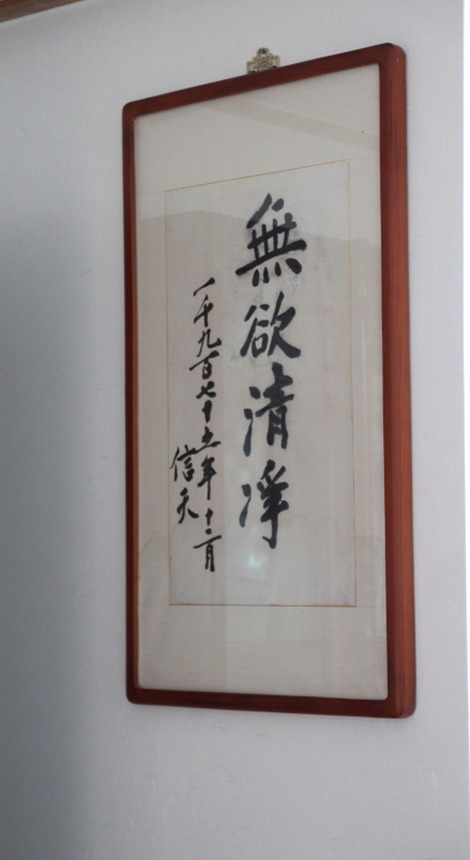 無欲清淨
一千九百七十五年十二月
信天